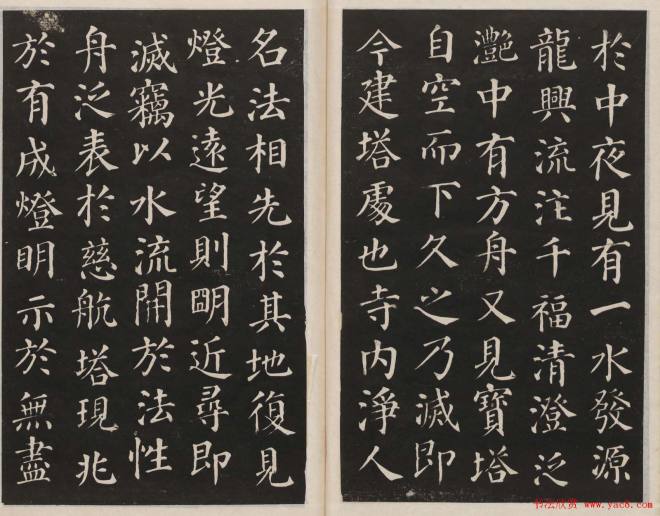 於中夜見有一水發源
龍興流注千福清澄泛
灧中有方舟又見寶塔
自空而下久之乃滅即
今建塔處也寺内淨人
名法相先於其地復見
燈光遠望則明近尋即
滅竊以水流開於法性
舟泛表於慈航塔現兆
於有成燈明示於無盡
书法欣赏 www.yac8.com